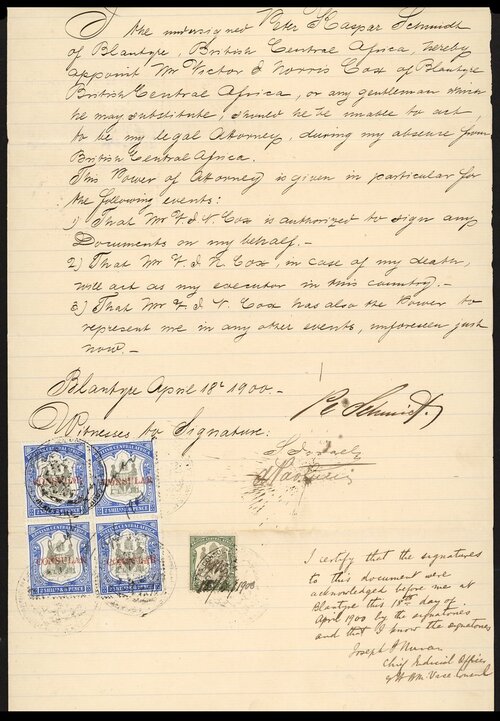 I the undersigned Peter Kaspar Schmidt
of Blantyre, British Central Africa, hereby
appoint Mr Victor I Norris Cox of Blantyre
British Central Africa, or any gentleman whom
he may substitute, should he be unable to act,
to be my legal Attorney, during my absence from
British Central Africa.
This Power of Attorney is given in particular for
the following events:
1) That Mr V. I. N. Cox is authorized to sign any
Documents on my behalf.-
2) That Mr V. I. N. Cox, in case of my death,
will act as my executor in this country.-
3) That Mr V. I. N. Cox has also the Power to
represent me in any other events, unforeseen just
now.-
Blantyre April 18t 1900.-
Schmidt
Witnesses to Signature:
BRITISH CENTRAL AFRICA
CONSULAR CONSULAR
2 SHILLING & 6 PENCE
CONSULAR CONSULAR
1900
I certify that the signatures
to this document were
acknowledged before me at
Blantyre this 18th day of
April 1900 by the signatories
and that I know the signatories
Joseph
Chief Judicial Officer
& H.B.M. Vice Consul